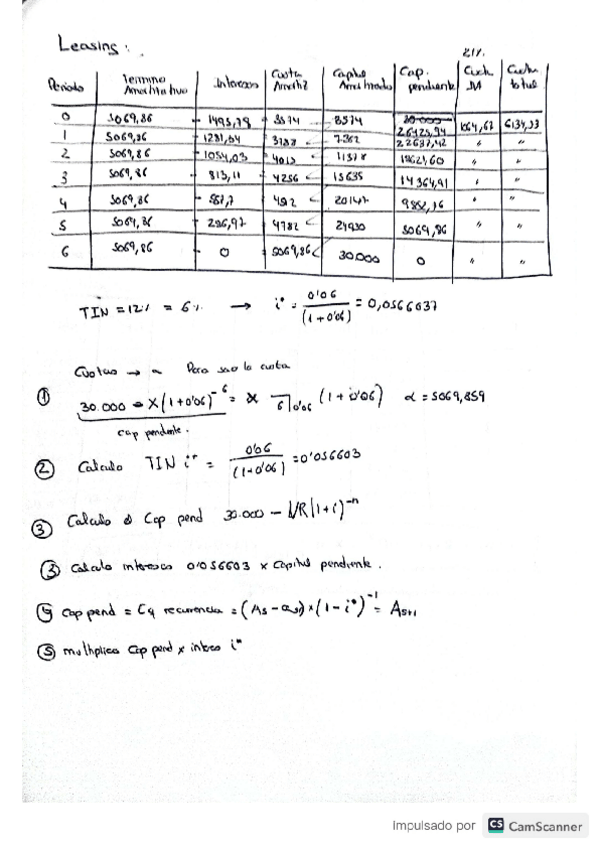 Leasing:
21%
Periodo | Termino Arrendativo | Intereses | Cuota Amortz | Capital Amortizado | Cap. pendiente | Cuota IVA | Cuota total
0 | 5069,86 | 1495,78 | 3574 | 3574 | 30.000 26425,94 | 1064,67 | 6134,53
1 | 5069,86 | 1281,64 | 3788 | 7362 | 22637,42 | " | "
2 | 5069,86 | 1054,03 | 4015 | 11378 | 18621,60 | " | "
3 | 5069,86 | 813,11 | 4256 | 15635 | 14364,91 | " | "
4 | 5069,86 | 557,7 | 4512 | 20147 | 9852,16 | " | "
5 | 5069,86 | 286,97 | 4782 | 24930 | 5069,86 | " | "
6 | 5069,86 | 0 | 5069,86 | 30.000 | 0 | " | "
TIN = 12% = 6% → i* = 0'06 / (1+0'06) = 0,0566037
Cuotas → a Para sale la cuota
① 30.000 - X(1+0'06)^-6 = X a6┐0'06 (1+0'06) α = 5069,859
cap pendiente.
② Calculo TIN i* = 0'06 / (1-0'06) = 0'056603
③ Calculo Cap pend 30.000 - VR(1+i)^-n
③ Calculo intereses 0'056603 x Capital pendiente.
④ Cap pend = Cq recurrencia = (As-as) x (1-i*)^-1 = As+1
⑤ multiplica Cap pend x interes i*
Impulsado por CS CamScanner